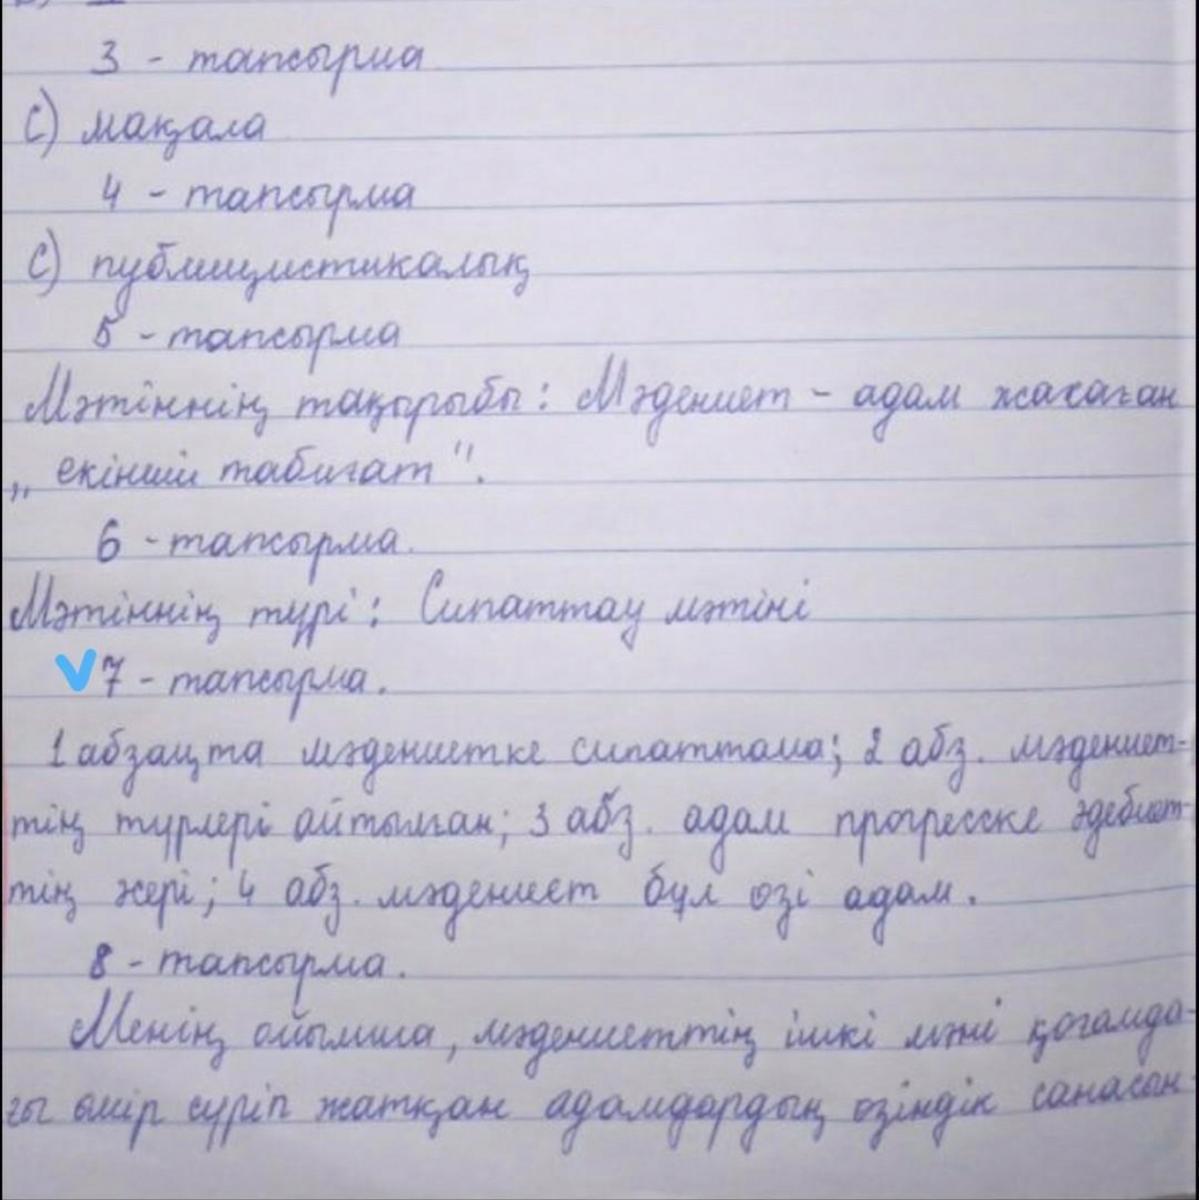 3 - тапсырма
С) мақала
4 - тапсырма
С) публицистикалық
5 - тапсырма
Мәтіннің тақырыбы: Мәдениет - адам жасаған
„ екінші табиғат ".
6 - тапсырма.
Мәтіннің түрі: Сипаттау мәтіні
7 - тапсырма.
1 абзацта мәдениетке сипаттама; 2 абз. мәдениет-
тің түрлері айтылған; 3 абз. адам прогресске әдебиет-
тің жері; 4 абз. мәдениет бұл өзі адам.
8 - тапсырма.
Менің ойымша, мәдениеттің ішкі мәні қоғамда-
ғы өмір сүріп жатқан адамдардың өзіндік санасын-